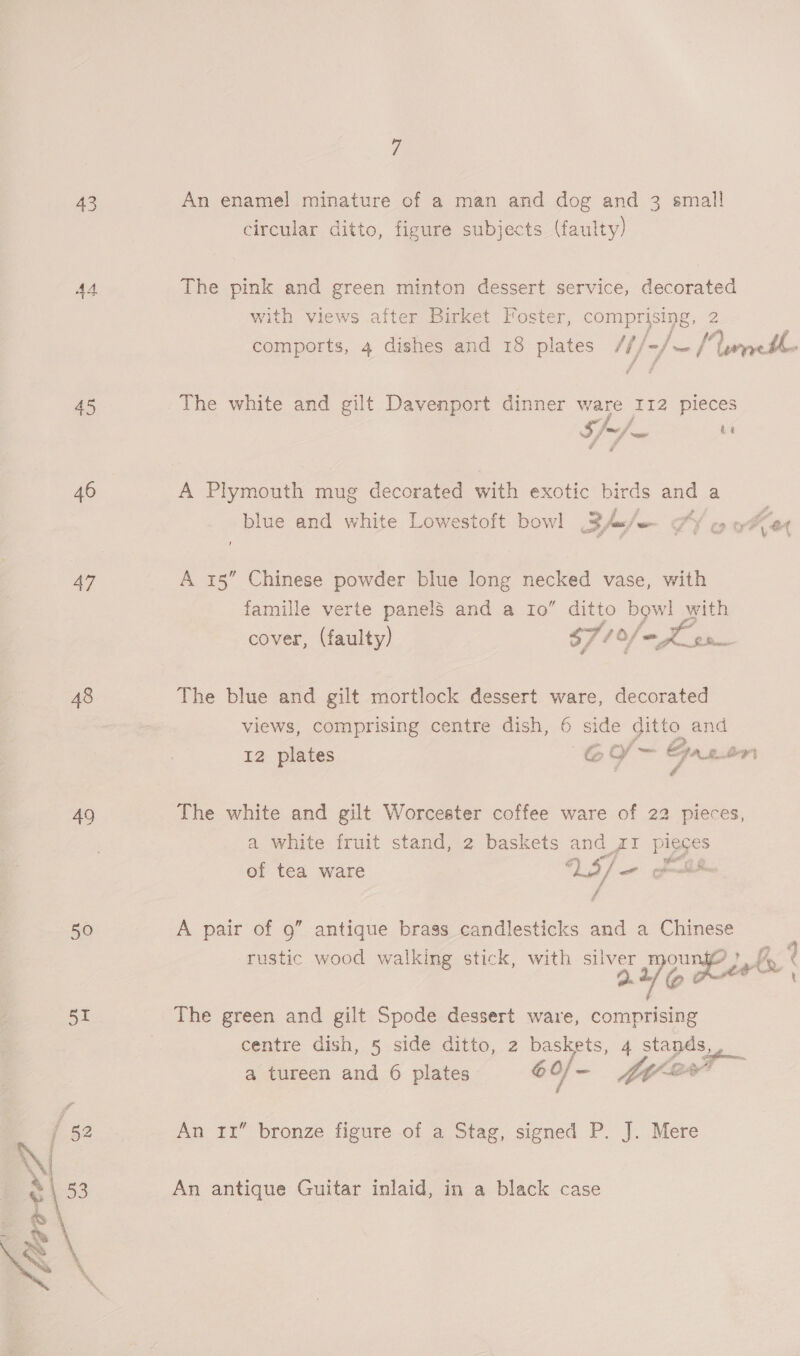 7
43 An enamel minature of a man and dog and 3 small
circular ditto, figure subjects (faulty)
44 The pink and green minton dessert service, decorated
with views after Birket Foster, comprising, 2
comports, 4 dishes and 18 plates 11/-/-
45 The white and gilt Davenport dinner ware 112 pieces
5/-/- "
46 A Plymouth mug decorated with exotic birds and a
blue and white Lowestoft bowl 3/-/-
47 A 15" Chinese powder blue long necked vase, with
famille verte panels and a 10" ditto bowl with
cover, (faulty)
48 The blue and gilt mortlock dessert ware, decorated
views, comprising centre dish, 6 side ditto and
12 plates 60/-
49 The white and gilt Worcester coffee ware of 22 pieces,
a white fruit stand, 2 baskets and 11 pieces
of tea ware 25/-
50 A pair of 9" antique brass candlesticks and a Chinese
rustic wood walking stick, with silver mount
22/6
51 The green and gilt Spode dessert ware, comprising
centre dish, 5 side ditto, 2 baskets, 4 stands,
a tureen and 6 plates 60/-
52 An 11" bronze figure of a Stag, signed P. J. Mere
53 An antique Guitar inlaid, in a black case